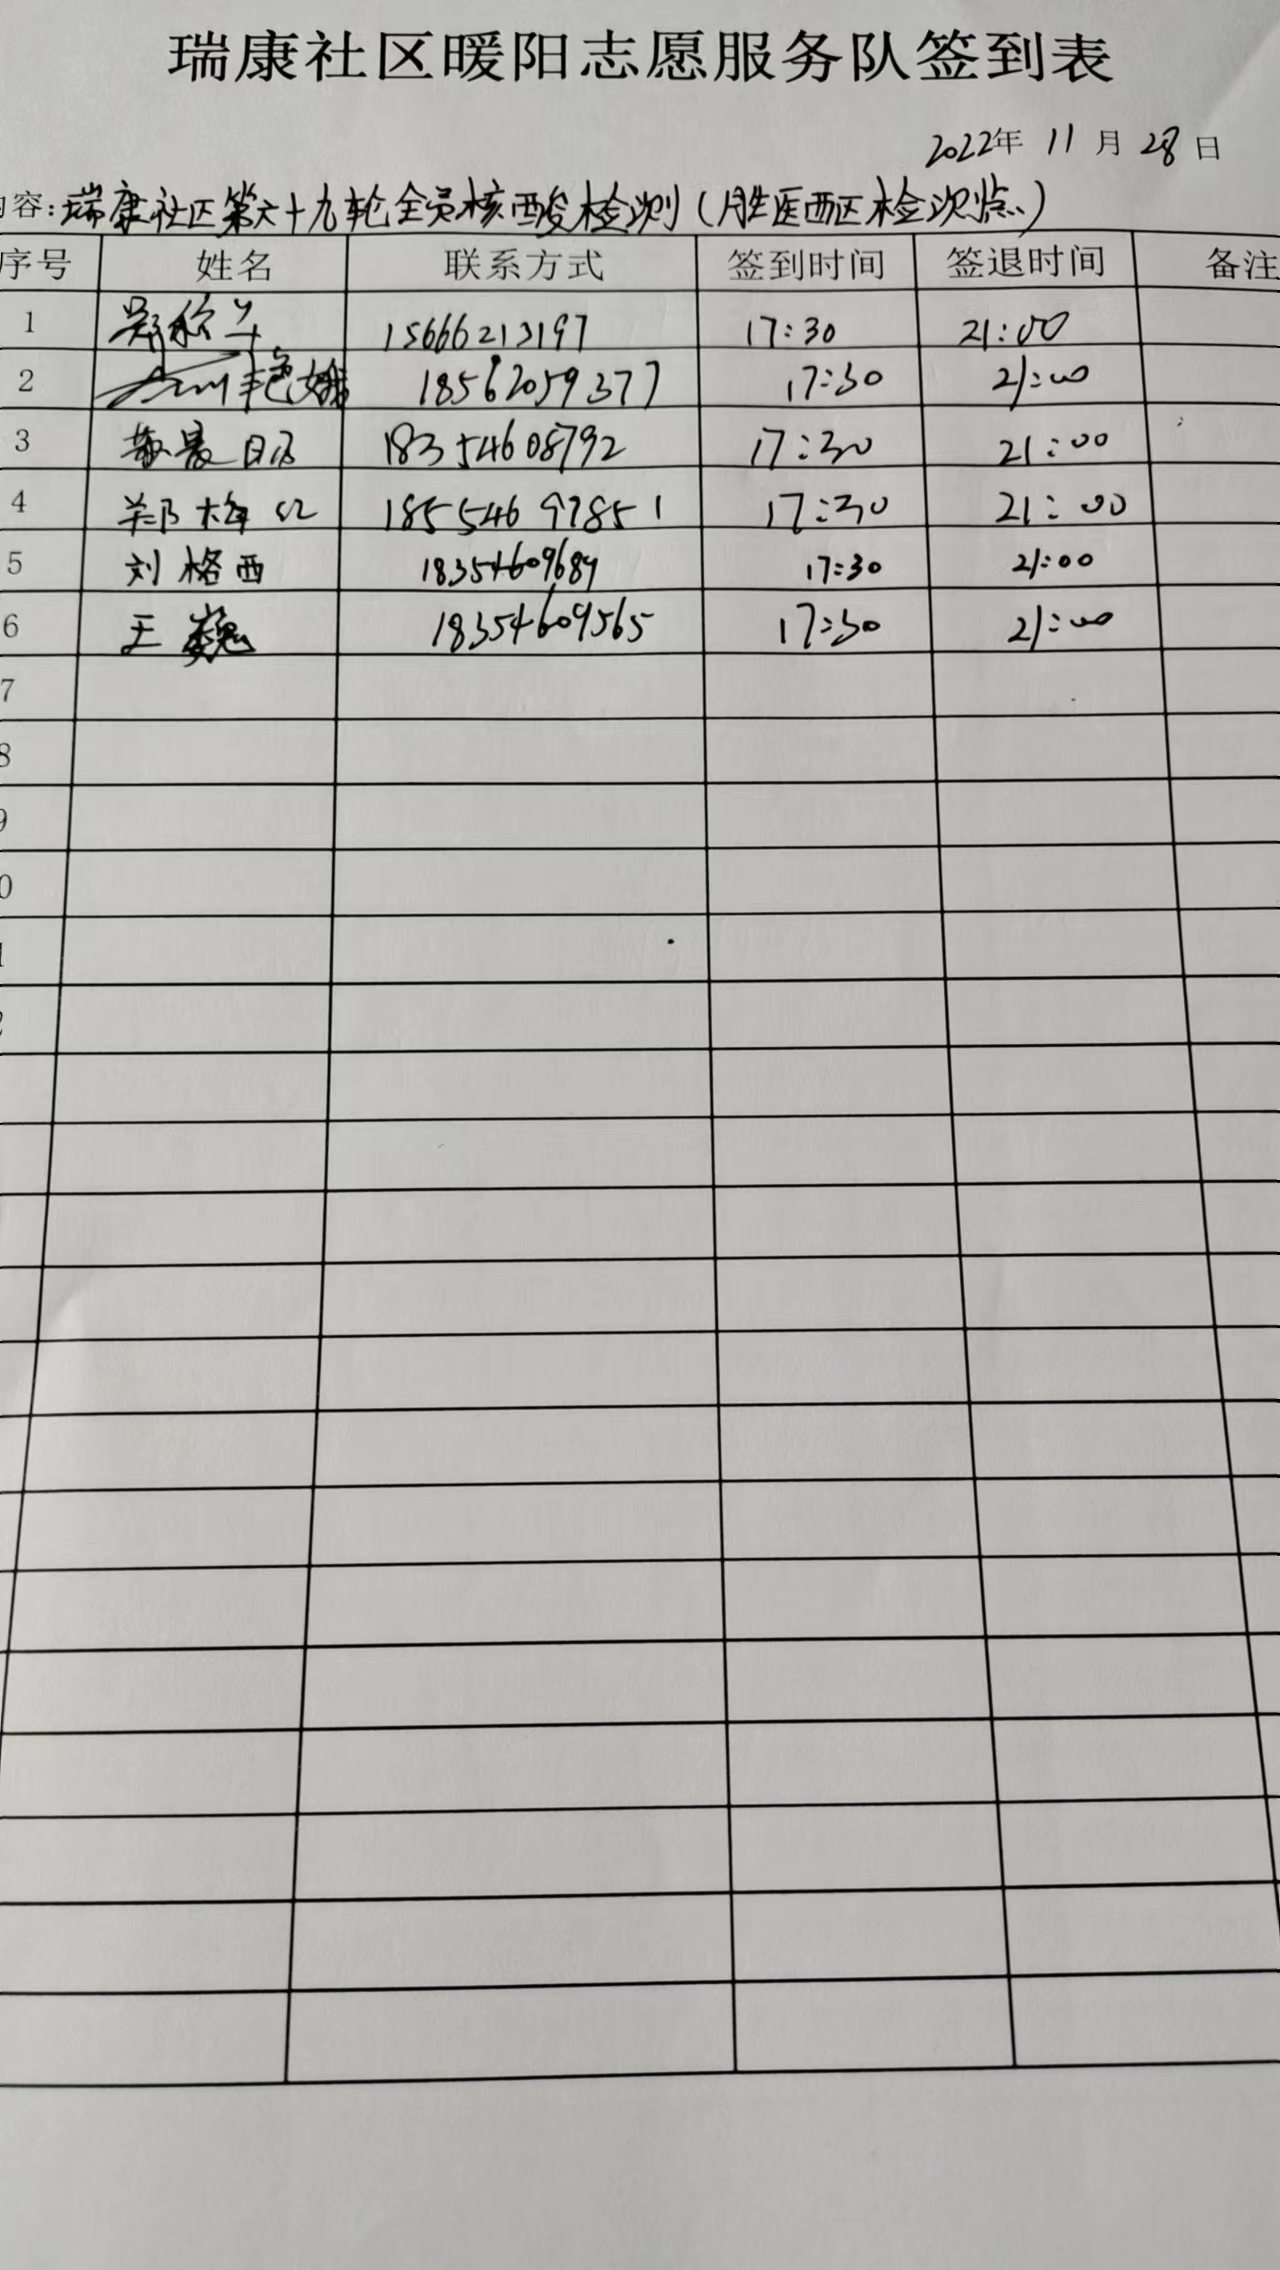 瑞康社区暖阳志愿服务队签到表
2022年 11月 28日
内容:瑞康社区第六十九轮全员核酸检测(胜医西区检测点)
序号 姓名 联系方式 签到时间 签退时间 备注
1 15666213197 17:30 21:00
2 艳娥 18562059377 17:30 21:00
3 18354608792 17:30 21:00
4 郑梅红 18554697851 17:30 21:00
5 刘格西 18354609689 17:30 21:00
6 王巍 18354609565 17:30 21:00
7
8
9
0
1
2